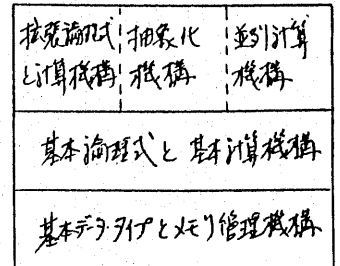 拡張論理式
と計算機構
抽象化
機構
並列計算
機構
基本論理式と基本計算機構
基本データ・タイプとメモリ管理機構